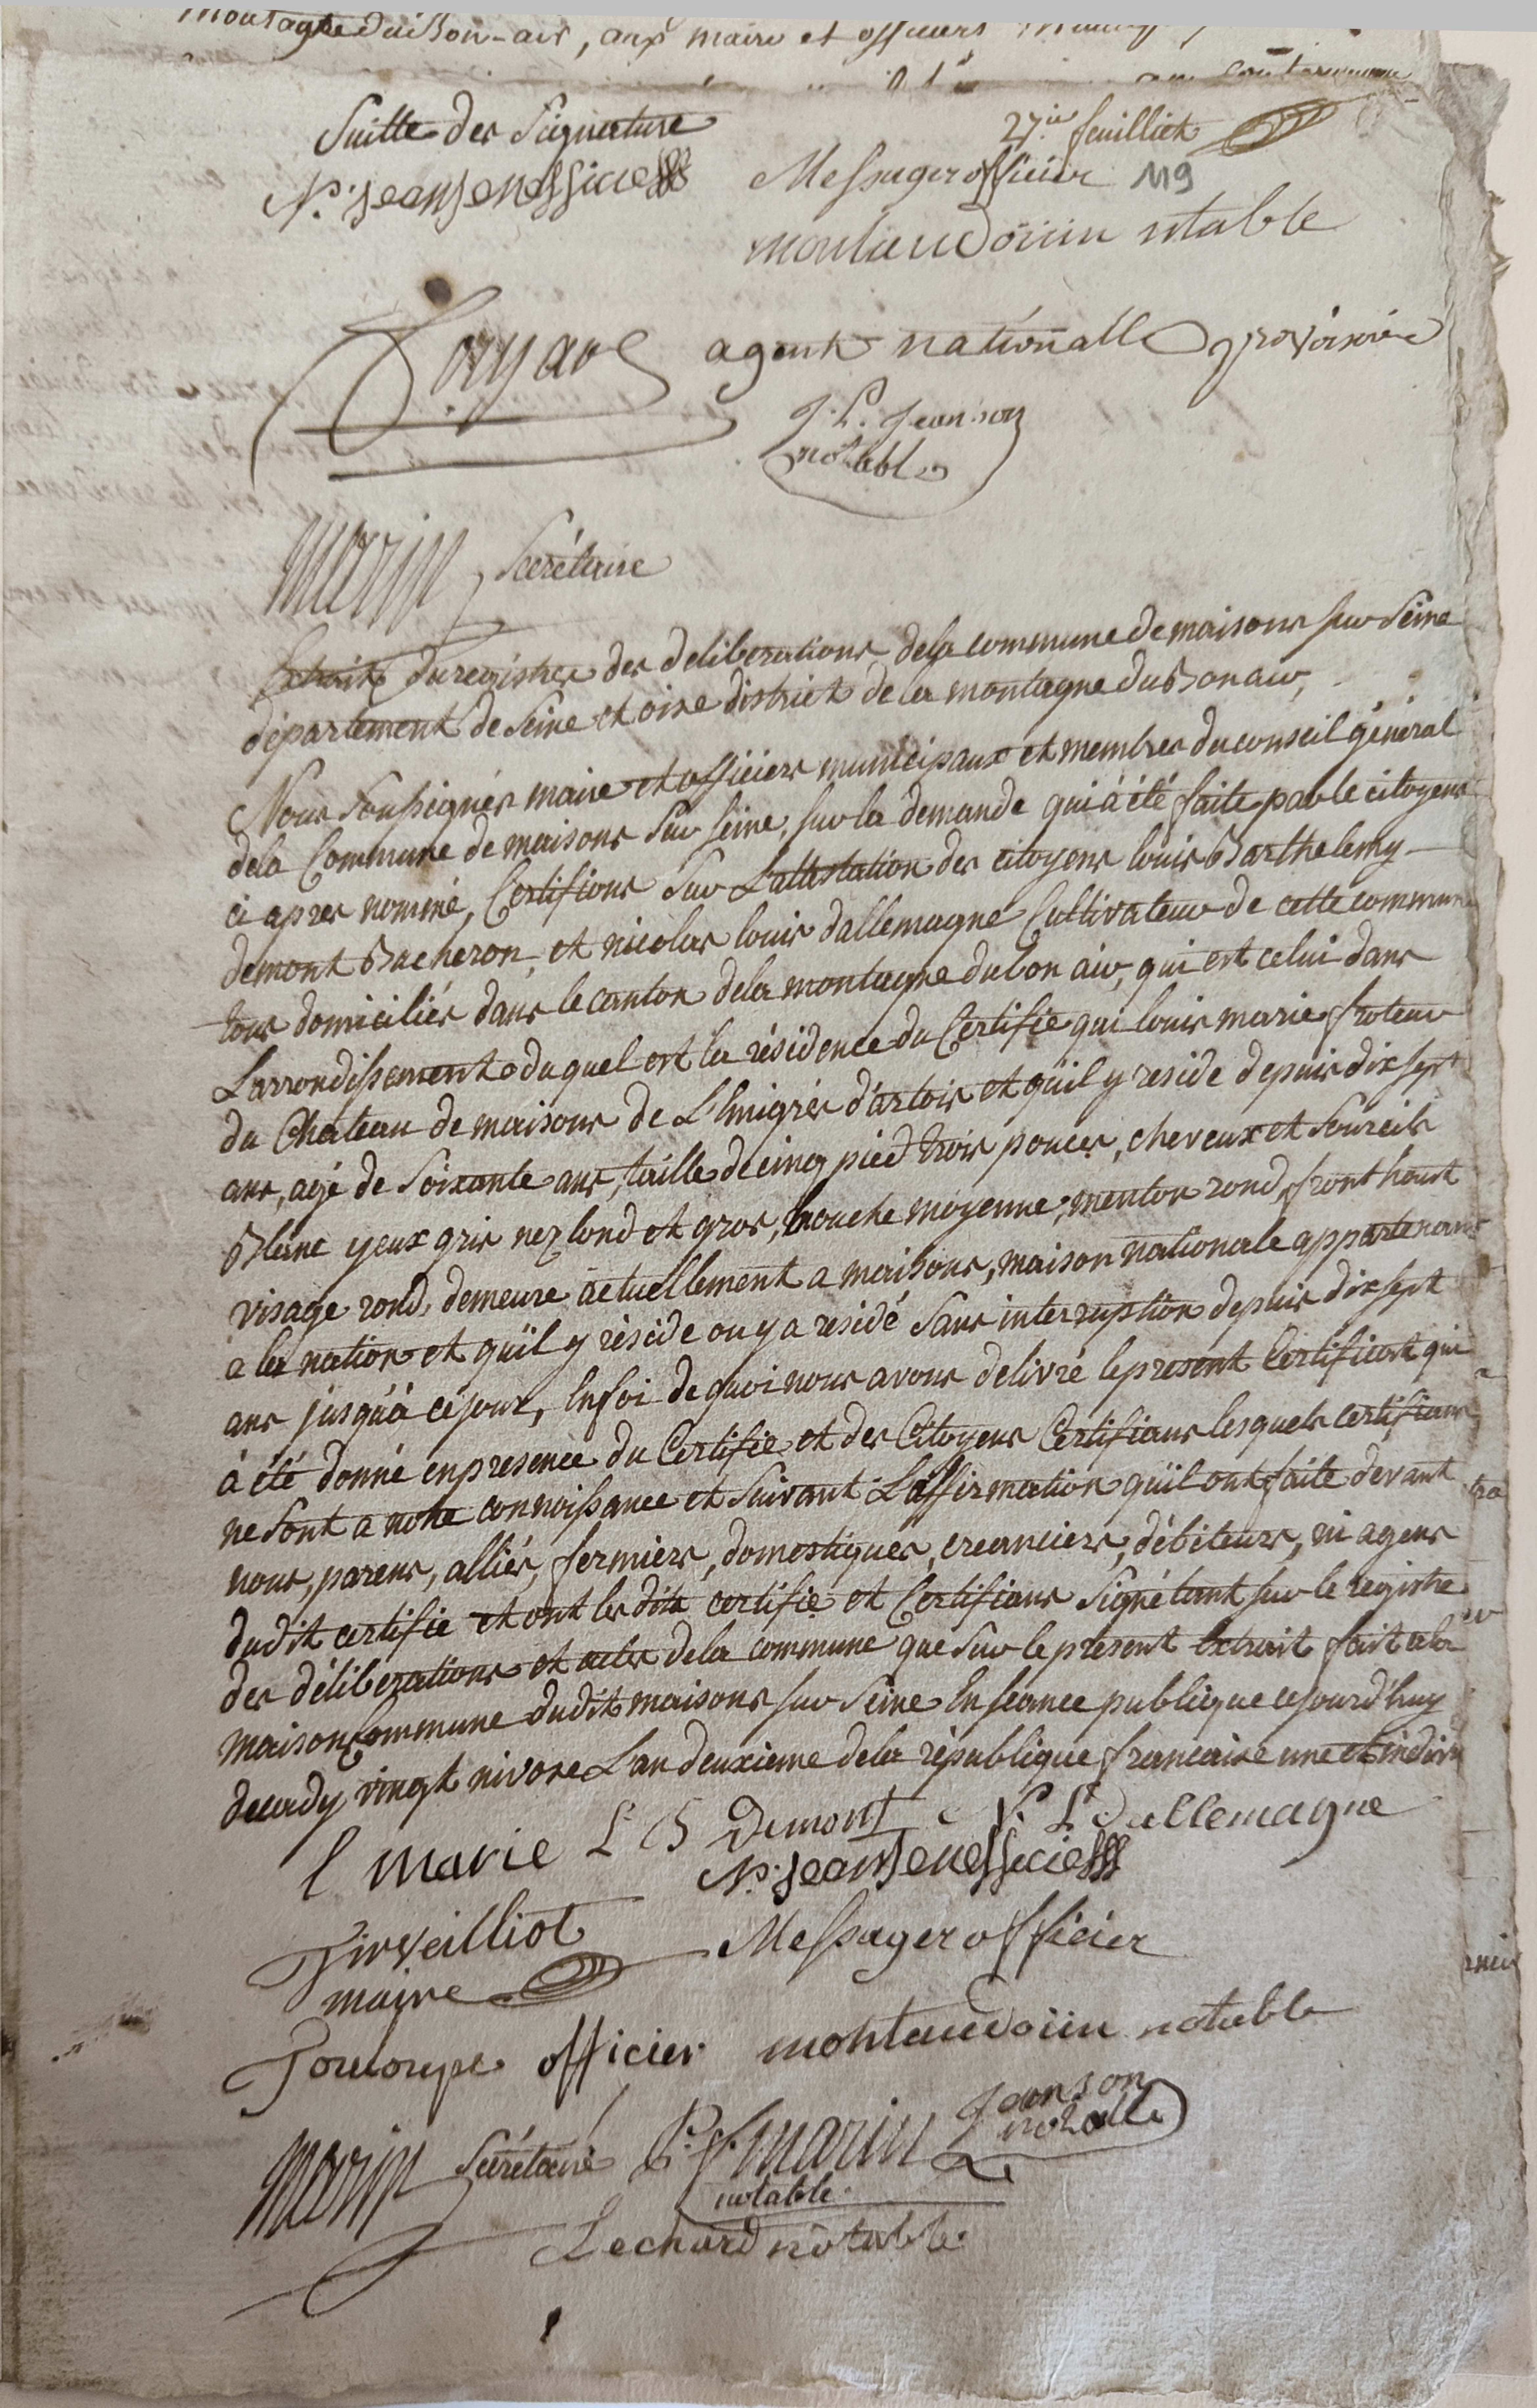 montagne du Bon-air, aux maire et officiers
Suitte des Signature
27.ie feuilliet
N. jeansen officie
Messager officier 119
montaudoüin notable
agent nationalle provisoire
J. P. Jeanson
notable
Marin Secrétaire
Extrait du registre des deliberations dela commune de maisons sur Seine
département de Seine et oise district de la montagne du Bonair,
Nous Soussignés maire et officiers municipaux et membres du conseil général
dela Commune de maisons Sur seine, sur la demande qui à été faite par le citoyens
ci apres nommé, Certifions Sur L'attestation des citoyens louis Barthelemy
demont Bacheron, et nicolas louis dallemagne Cultivateur de cette commune
tous domiciliés dans le canton dela montagne du bon air, qui est celui dans
L'arrondissement duquel est la résidence du Certifié qui louis marie froteur
du Château de maisons de L'Emigrés d'artois et quil y reside depuis dix sept
ans, agé de Soixante ans, taille de cinq pied trois pouces, cheveux et Sourcils
Blanc yeux gris nez lond et gros, bouche moyenne, menton rond, front haut
visage rond, demeure actuellement a maisons, maison nationale appartenant
a la nation et quil y réside ou y a residé Sans interruption depuis dix sept
ans jusqu'à cejour, En foi de quoi nous avons delivré le present Certificat qui
à été donné en presence du Certifié et des Citoyens Certifians lesquels certifians
ne Sont a notre connoissance et Suivant L'affirmation quil ont faite devant
nous, parens, alliés, fermiers, domestiques, creanciers, débiteurs, ni agens
dudit certifie et ont les dits certifié et Certifians Signé tant sur le registre
des déliberations et actes dela commune que Sur le présent Extrait fait a la
maison Commune dudit maisons sur Seine En seance publique cejourd'huy
decady vingt nivose L'an deuxieme dela république francaise une et indivi
l marie L B Demont N. L. Dallemagne
N. jeansen officie
Messager officier
maire
officier montaudoüin notable
Jeanson
notable
Marin Secrétaire P. f. marin
notable
Lechard notable